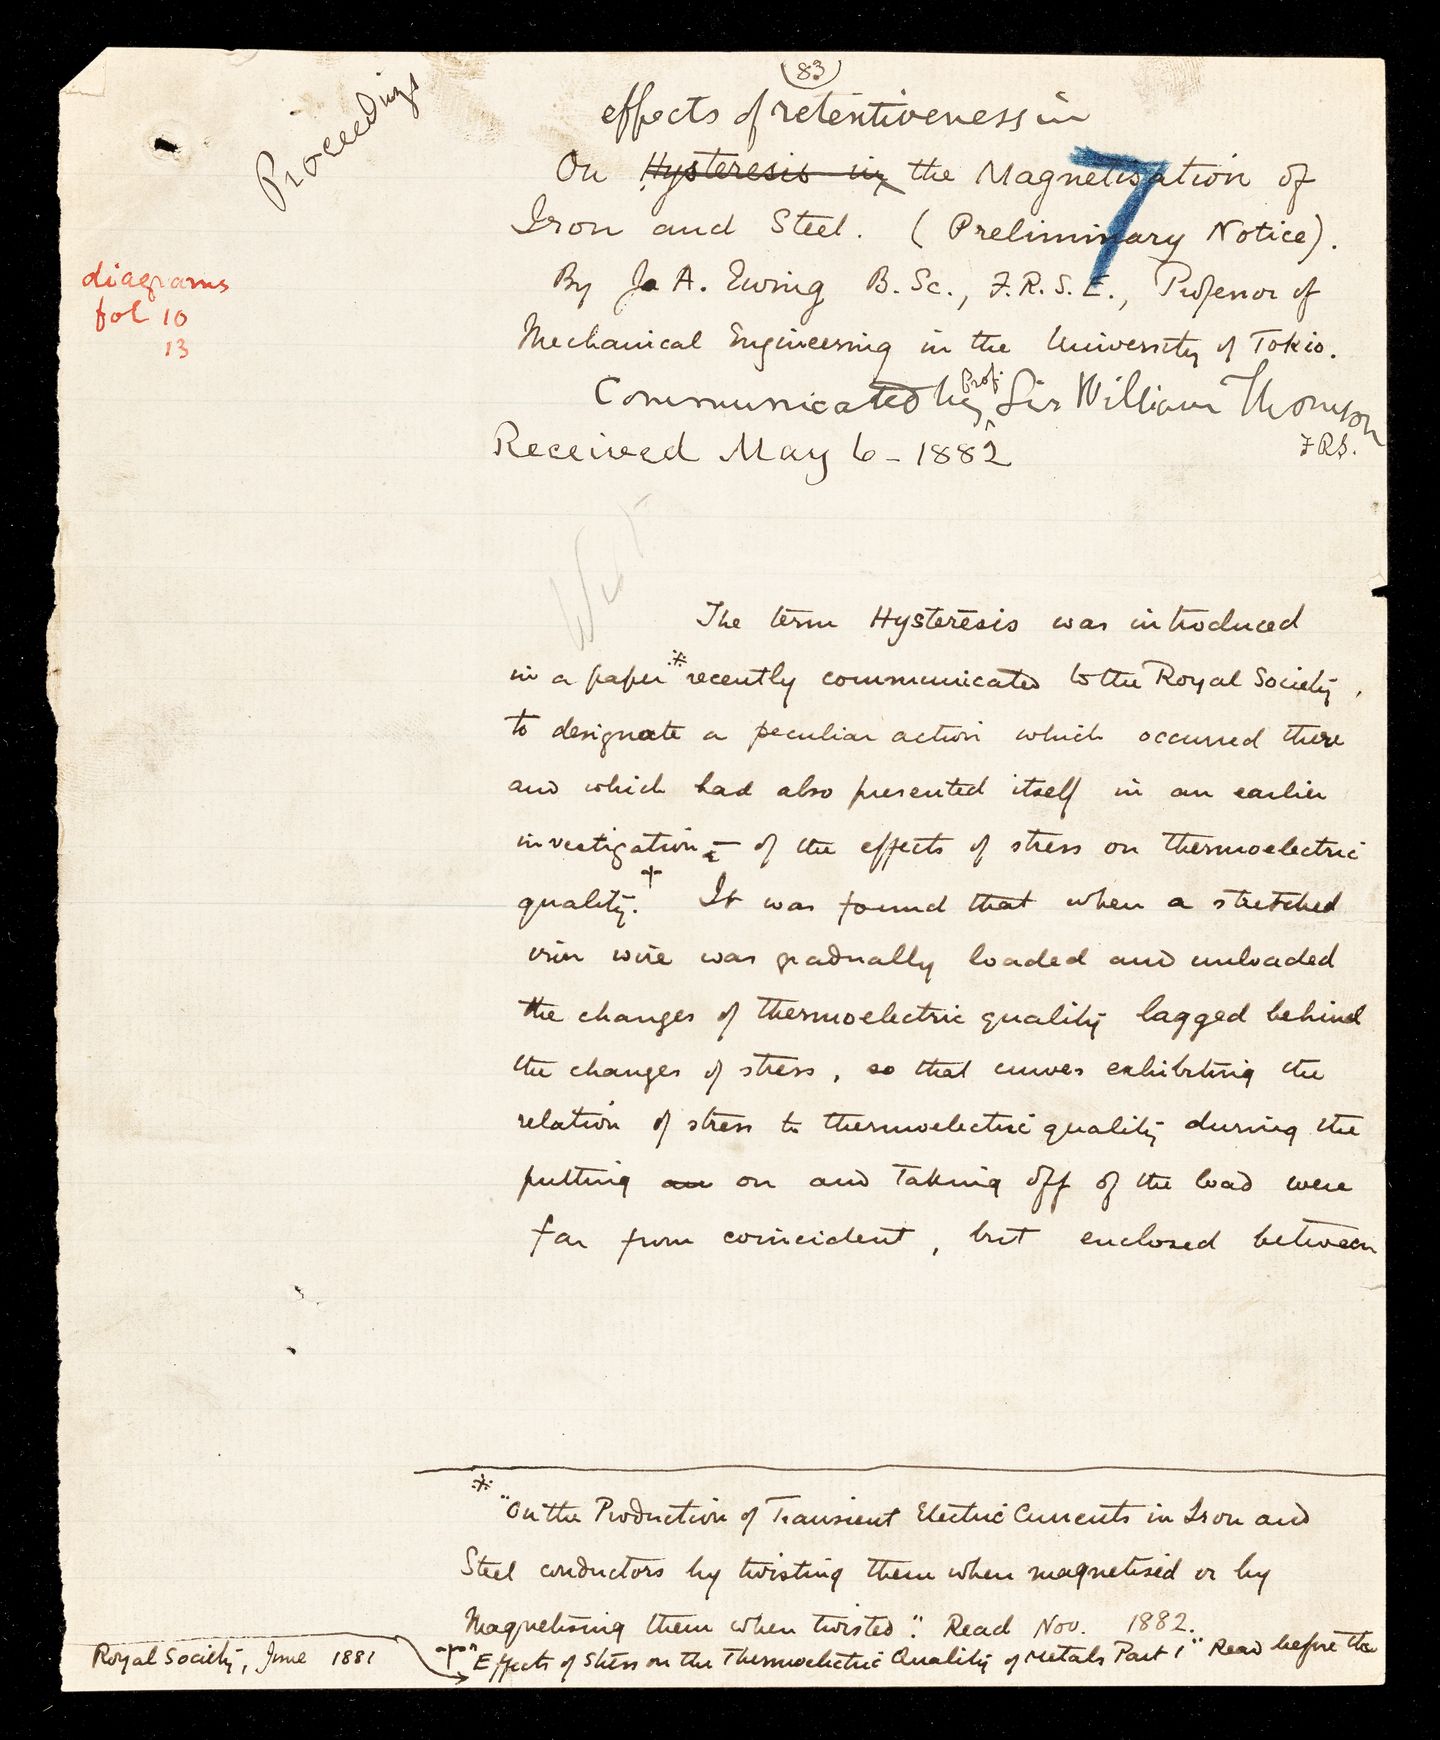 (83)
Proceedings
effects of retentiveness in
On Hysteresis in the Magnetisation of
7
Iron and Steel. (Preliminary Notice).
diagrams
fol 10
13
By J. A. Ewing B.Sc., F.R.S.E., Professor of
Mechanical Engineering in the University of Tokio.
Communicated by Prof. Sir William Thomson
F.R.S.
Received May 6 - 1882
The term Hysteresis was introduced
in a paper * recently communicated to the Royal Society,
to designate a peculiar action which occurred there
and which had also presented itself in an earlier
investigation of the effects of stress on thermoelectric
quality. † It was found that when a stretched
iron wire was gradually loaded and unloaded
the changes of thermoelectric quality lagged behind
the changes of stress, so that curves exhibiting the
relation of stress to thermoelectric quality during the
putting an on and taking off of the load were
far from coincident, but enclosed between
* "On the Production of Transient Electric Currents in Iron and
Steel conductors by twisting them when magnetised or by
Magnetising them when twisted". Read Nov. 1882.
† "Effects of Stress on the Thermoelectric Quality of Metals Part 1" Read before the
Royal Society, June 1881